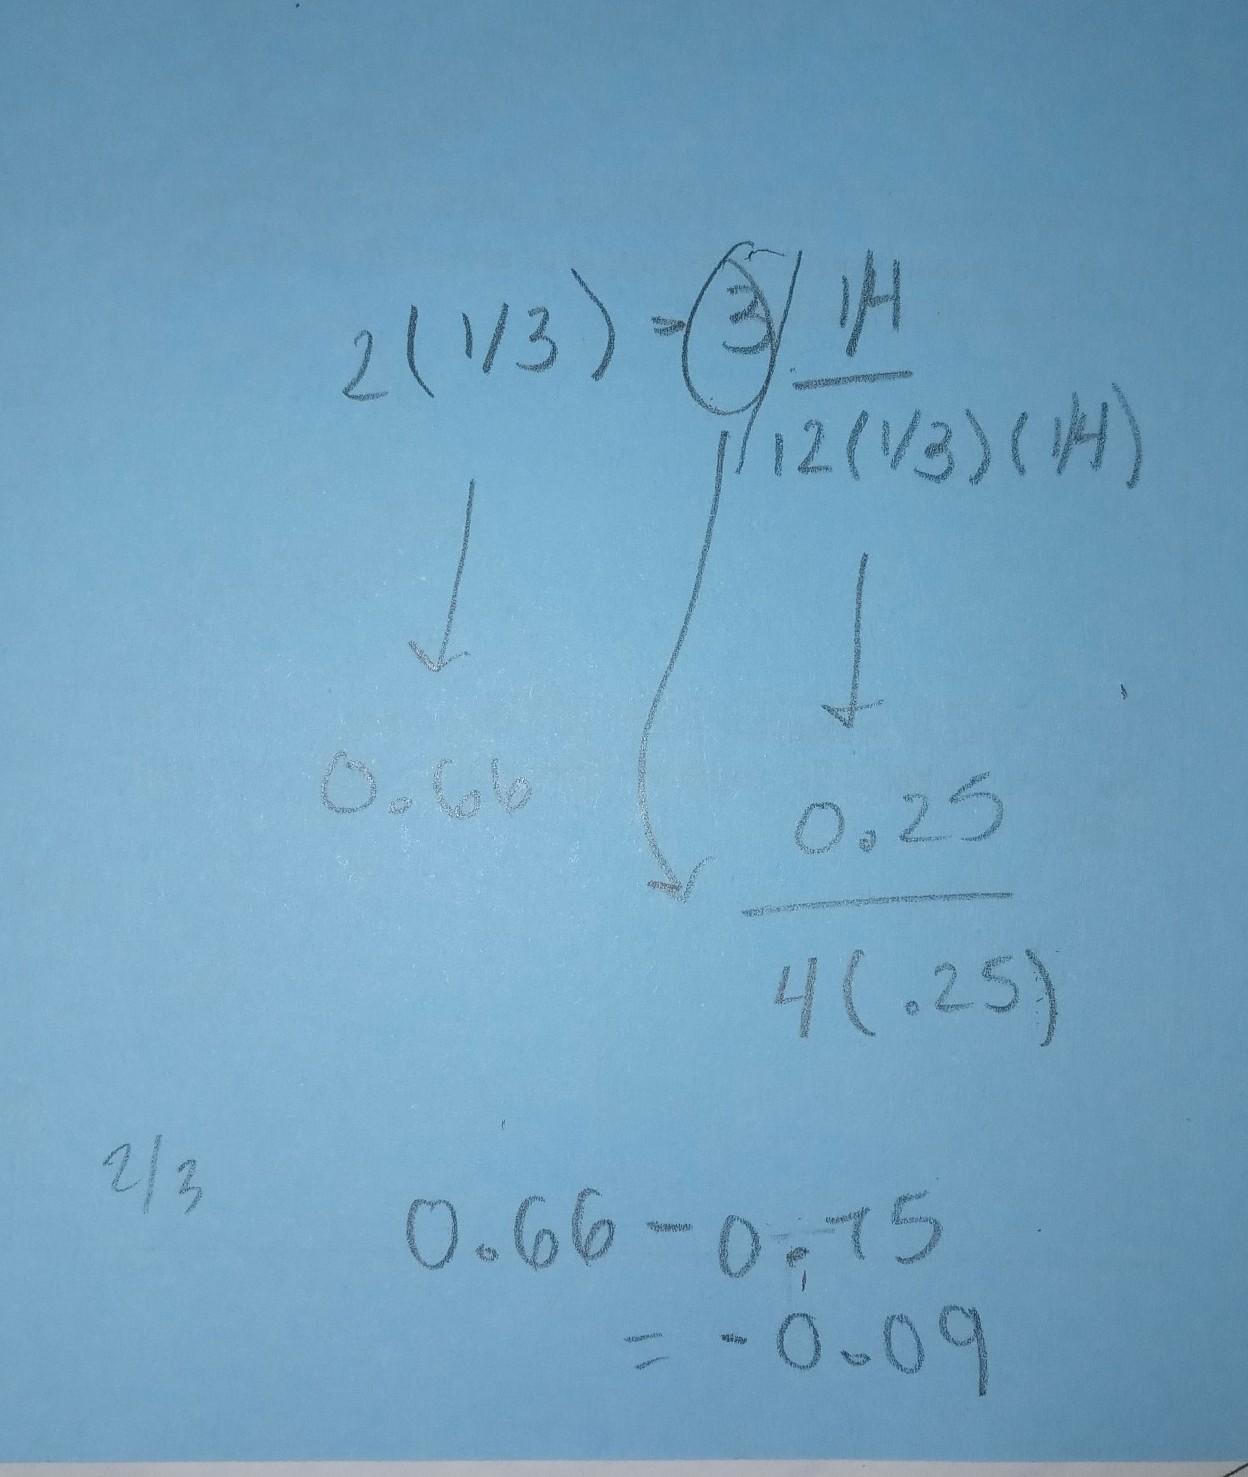 2(1/3) = 3 1/4
12(1/3)(1/4)
0.66
0.25
4(.25)
2/3
0.66-0.75
= -0.09